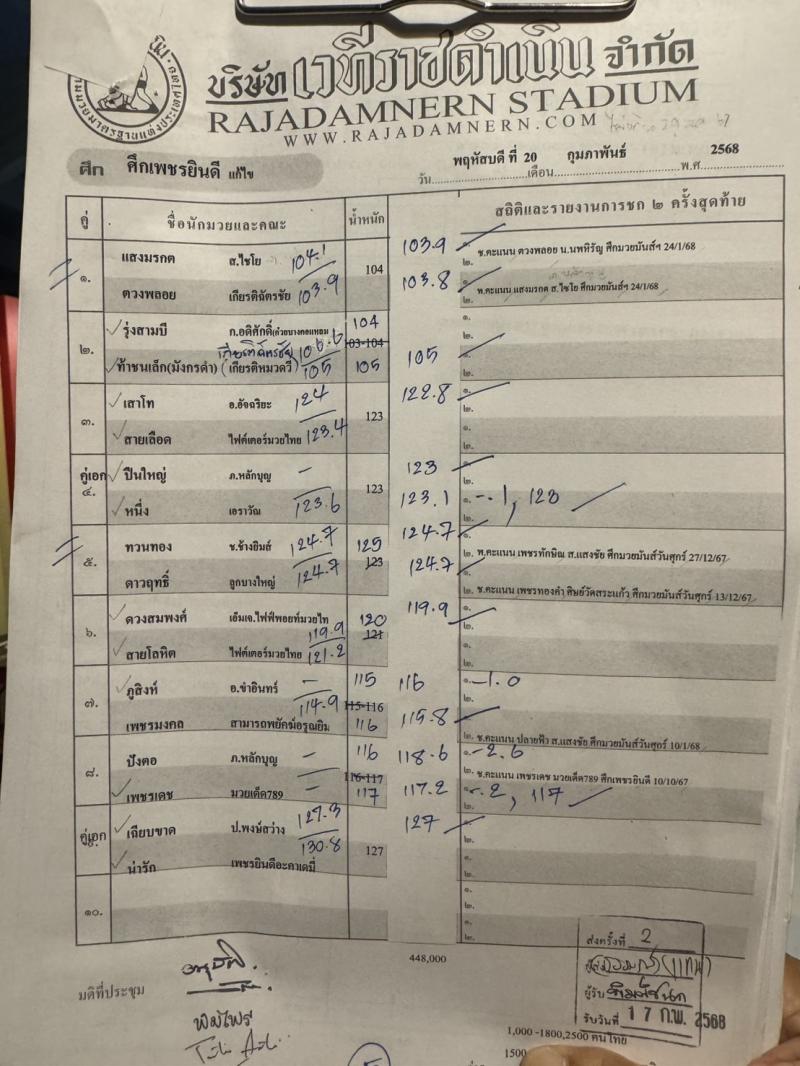 บริษัท เวทีราชดำเนิน จำกัด
RAJADAMNERN STADIUM
WWW.RAJADAMNERN.COM
ศึก ศึกเพชรยินดี แก้ไข
วัน พฤหัสบดี ที่ 20 เดือน กุมภาพันธ์ พ.ศ. 2568
คู่ ชื่อนักมวยและคณะ น้ำหนัก สถิติและรายงานการชก ๒ ครั้งสุดท้าย
๑. แสงมรกต ส.ไชโย 104.1 104 103.9 ๑. ช.คะแนน ดวงพลอย น.นพหิรัญ ศึกมวยมันส์ฯ 24/1/68
๒.
ดวงพลอย เกียรติฉัตรชัย 103.9 103.8 ๑.
๒. พ.คะแนน แสงมรกต ส.ไชโย ศึกมวยมันส์ฯ 24/1/68
๒. รุ่งสามบี ก.อดิศักดิ์(ก๋วยบางคอแหลม 106.6 104 ๑.
103-104 ๒.
ท้าชนเล็ก(มังกรดำ) (เกียรติหมวดวี) เกียรติฉัตรชัย 105 105 105 ๑.
๒.
๓. เสาโท อ.อัจฉริยะ 124 123 122.8 ๑.
๒.
สายเลือด ไฟต์เตอร์มวยไทย 123.4 ๑.
๒.
คู่เอก ๔. ปืนใหญ่ ภ.หลักบุญ - 123 123 ๑.
๒.
หนึ่ง เอราวัณ 123.6 123.1 ๑. -.1, 123
๒.
๕. ทวนทอง ช.ช้างยิมส์ 124.7 125 124.7 ๑.
123 ๒. พ.คะแนน เพชรทักษิณ ส.แสงชัย ศึกมวยมันส์วันศุกร์ 27/12/67
ดาวฤทธิ์ ลูกบางใหญ่ 124.7 124.7 ๑.
๒. ช.คะแนน เพชรทองคำ ศิษย์วัดสระแก้ว ศึกมวยมันส์วันศุกร์ 13/12/67
๖. ดวงสมพงศ์ เอ็มเจ.ไฟฟ์พอยท์มวยไท 119.9 120 119.9 ๑.
121 ๒.
สายโลหิต ไฟต์เตอร์มวยไทย 121.2 ๑.
๒.
๗. ภูสิงห์ อ.ขำอินทร์ - 115 116 ๑. -1.0
115-116 ๒.
เพชรมงคล สามารถพยัคฆ์อรุณยิม 114.9 116 115.8 ๑.
๒. ช.คะแนน ปลายฟ้า ส.แสงชัย ศึกมวยมันส์วันศุกร์ 10/1/68
๘. ปังตอ ภ.หลักบุญ - 116 118.6 ๑. -2.6
116-117 ๒. ช.คะแนน เพชรเดช มวยเด็ด789 ศึกเพชรยินดี 10/10/67
เพชรเดช มวยเด็ด789 - 117 117.2 ๑. -.2, 117
๒.
คู่เอก เฉียบขาด ป.พงษ์สว่าง 127.3 127 127 ๑.
๒.
น่ารัก เพชรยินดีอะคาเดมี่ 130.8 ๑.
๒.
๑๐. ๑.
๒.
๑.
๒.
448,000
ส่งครั้งที่ 2
มติที่ประชุม
ผู้รับ
รับวันที่ 17 ก.พ. 2568
1,000 -1800,2500 คนไทย
1500